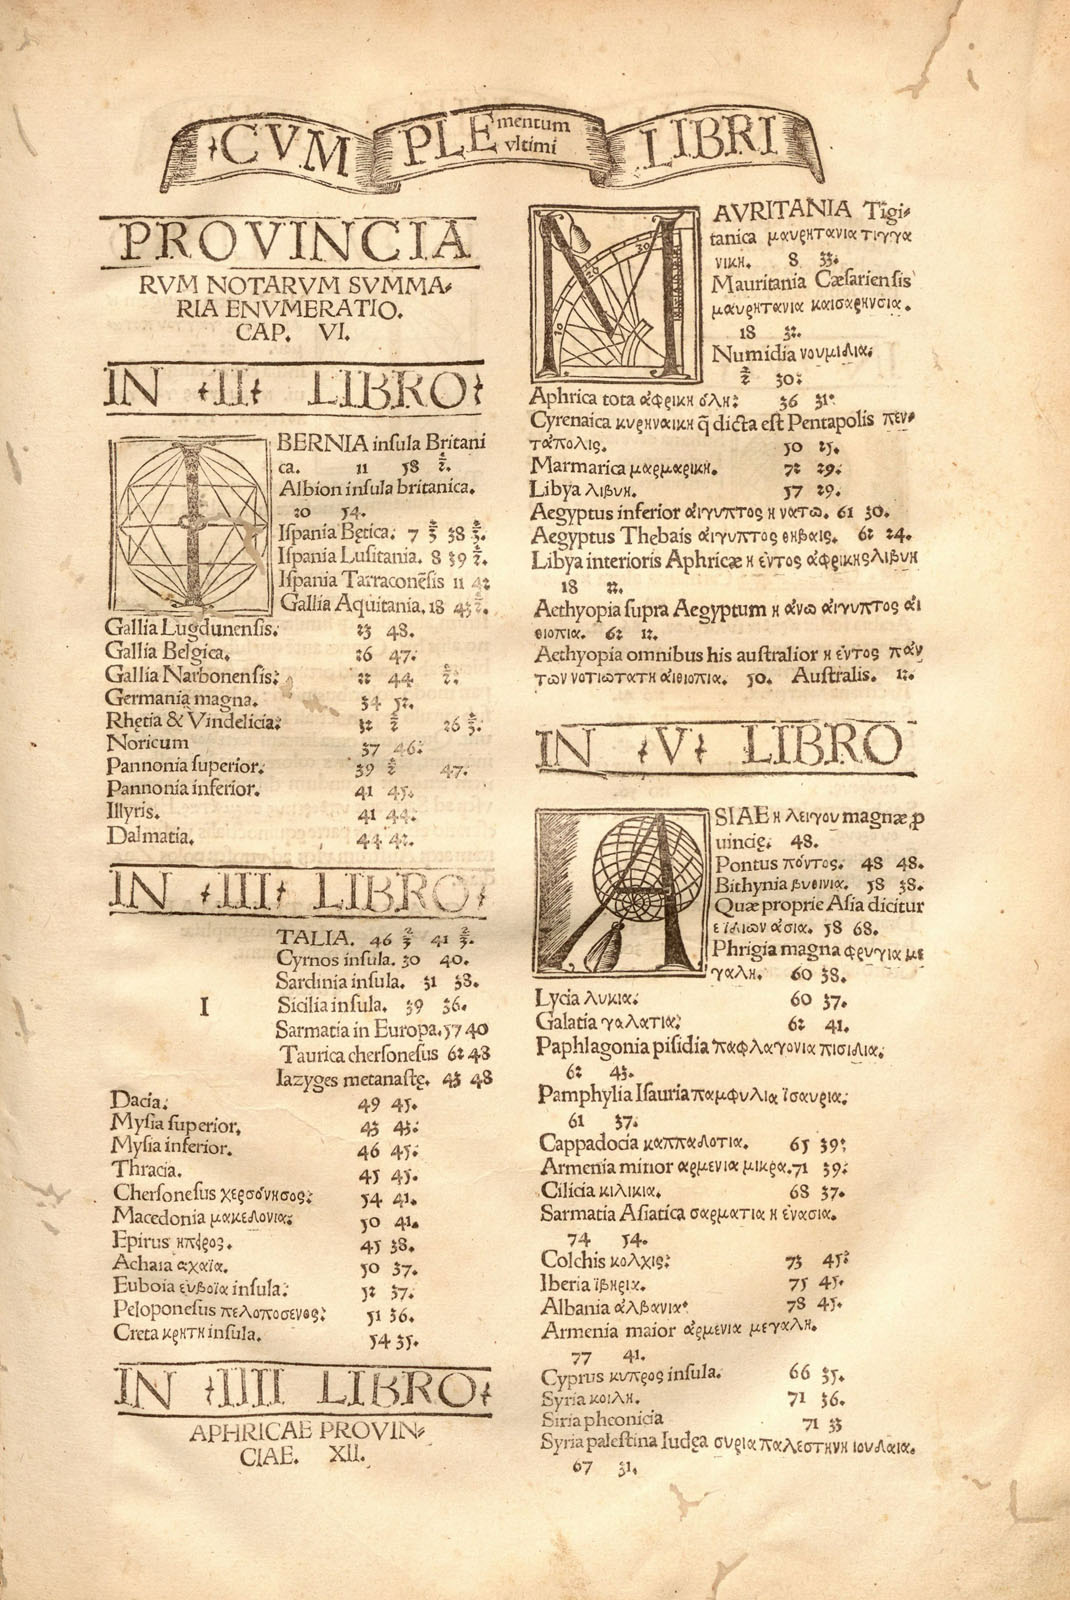 CVM PLEmentum vltimi LIBRI
PROVINCIA
RVM NOTARVM SVMMA-
RIA ENVMERATIO.
CAP. VI.
IN II LIBRO
BERNIA insula Britani
ca. 11 58
Albion insula britanica.
20 54.
Ispania Bętica. 7 38
Ispania Lusitania. 8 39
Ispania Tarraconēsis 11 42
Gallia Aquitania. 18 43
Gallia Lugdunensis. 23 48.
Gallia Belgica. 26 47.
Gallia Narbonensis: 22 44
Germania magna. 34 52.
Rhętia & Vindelicia: 32 26
Noricum 37 46:
Pannonia superior. 39 47.
Pannonia inferior. 41 45.
Illyris. 41 44.
Dalmatia. 44 42.
IN III LIBRO
I TALIA. 46 41
Cyrnos insula. 30 40.
Sardinia insula. 31 38.
Sicilia insula. 39 36.
Sarmatia in Europa. 57 40
Taurica chersonesus 62 48
Iazyges metanastę. 43 48
Dacia. 49 45.
Mysia superior, 43 43.
Mysia inferior. 46 45.
Thracia. 45 45.
Chersonesus χερσόνησος: 54 41.
Macedonia μακεδονια: 50 41.
Epirus 45 38.
Achaia αχαϊα. 50 37.
Euboia ευβοϊα insula. 52 37.
Peloponesus πελοποσενος: 51 36.
Creta κρητη insula. 54 35.
IN IIII LIBRO
APHRICAE PROVIN-
CIAE. XII.
MAVRITANIA Tigi-
tanica μαυρητανια τιγγα
νικη. 8 33.
Mauritania Cæsariensis
μαυρητανια καισαρηνσια.
18 32.
Numidia νουμιδια:
30:
Aphrica tota ἀφρικη ὁλη: 36 31.
Cyrenaica κυρηναικη q̃ dicta est Pentapolis πεν-
τάπολις. 50 25.
Marmarica μαρμαρικη. 72 29.
Libya λιβυη. 57 29.
Aegyptus inferior αἰγυπτος η νατω. 61 30.
Aegyptus Thebais αἰγυπτος θηβαις. 62 24.
Libya interioris Aphricæ η ἐντος ἀφρικης λιβυη
18 22.
Aethyopia supra Aegyptum η ἀνω ἀιγυπτος ἀι
θιοπια. 62 12.
Aethyopia omnibus his australior η ἐντος πάν
των νοτιωτατη ἀιθιοπια. 50. Australis. 12.
IN V LIBRO
ASIAE η λειγου magnæ p
uincię. 48.
Pontus πόντος. 48 48.
Bithynia βυθινια. 58 38.
Quæ proprie Asia dicitur
ε ἰδιων ἀσια. 58 68.
Phrigia magna φρυγια με
γαλη. 60 38.
Lycia λυκια: 60 37.
Galatia γαλατια: 62 41.
Paphlagonia pisidia παφλαγονια πισιδια.
62 43.
Pamphylia Isauria παμφυλια ἰσαυρια.
61 37.
Cappadocia καππαδοτια. 65 39:
Armenia minor ἀρμενια μικρα. 71 39:
Cilicia κιλικια. 68 37.
Sarmatia Asiatica σαρματια η ἐνασια.
74 54.
Colchis κολχις: 73 45:
Iberia ἰβηρια. 75 45.
Albania ἀλβανια: 78 45.
Armenia maior ἀρμενια μεγαλη.
77 41.
Cyprus κυπρος insula. 66 35.
Syria κοιλη. 71 36.
Siria pheonicia 71 33
Syria palestina Iudęa συρια παλεστηνη ιουδαια.
67 31.